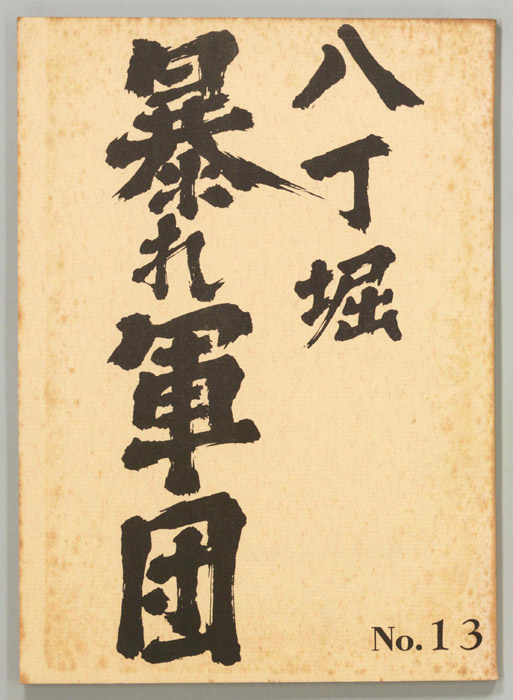 八丁堀
暴れ軍団
No.13